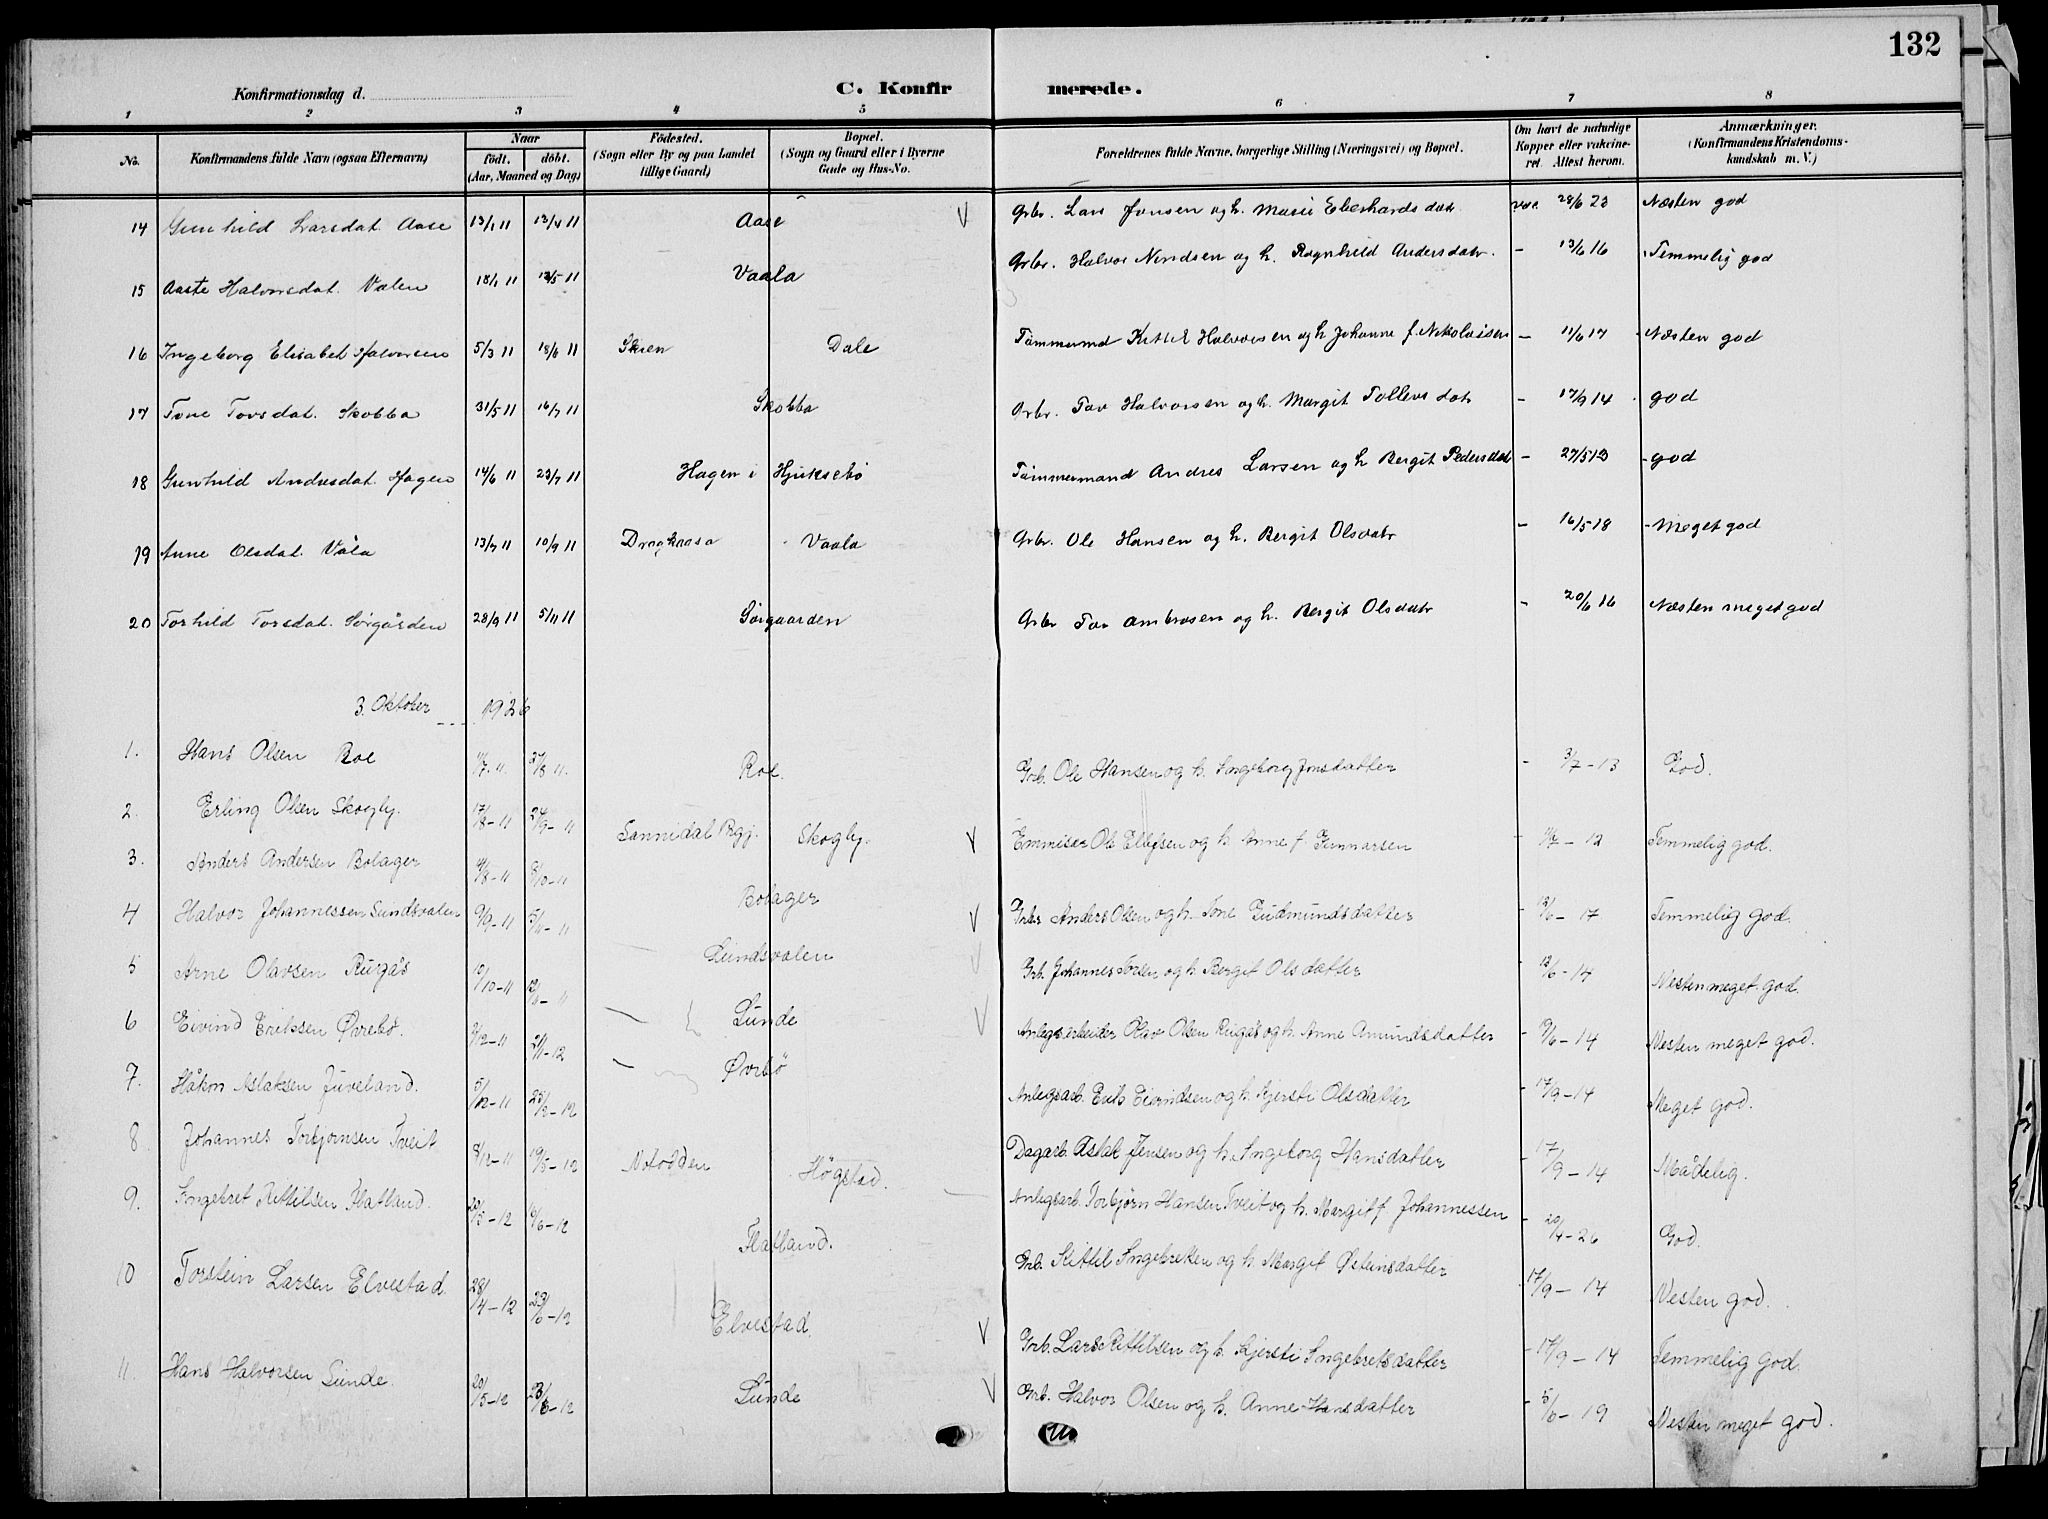 132
Konfirmationsdag d.
C. Konfirmerede.
1 2 3 4 5 6 7 8
No. Konfirmandens fulde Navn (ogsaa Efternavn) Naar født. døbt. (Aar, Maaned og Dag) Fødested. (Sogn eller By og paa Landet tillige Gaard) Bopæl. (Sogn og Gaard eller i Byerne Gade og Hus-No. Forældrenes fulde Navne, borgerlige Stilling (Næringsvei) og Bopæl. Om havt de naturlige Kopper eller vakcineret. Attest herom. Anmærkninger. (Konfirmandens Kristendomskundskab m. V.)
14 Gunhild Larsdat. Aase 13/1 11 13/4 11 Aase V Grbr. Lars Jonsen og h. Marie Eberhardsdatr vac. 28/6 23 Næsten god
15 Aaste Halvorsdat. Valen 18/1 11 Vaala Grbr. Halvor Niridsen og h. Ragnhild Andersdatr. - 13/6 16 Temmelig god
16 Ingeborg Elisabet Halvorsen 5/3 11 18/6 11 Skien Dale Tømmermd Kittil Halvorsen og h. Johanne f. Nikolaisen - 11/6 17 Næsten god
17 Tone Tovsdat. Skobba 31/5 11 16/7 11 Skobba Grbr. Tov Halvorsen og h. Margit Tollevsdatr - 17/9 14 god
18 Gunhild Andresdat. Hagen 14/6 11 23/7 11 Hagen i Hjuksebø Tømmermand Andres Larsen og h. Bergit Pedersdat - 27/5 13 god
19 Anne Olsdat. Våla 13/7 11 10/9 11 Vaala Grbr. Ole Hansen og h. Bergit Olsdatr - 16/5 18 Meget god
20 Torhild Tovsdat. Sørgården 28/9 11 5/11 11 Sørgaarden Grbr Tov Ambrosen og h. Bergit Olsdatr - 20/6 16 Næsten meget god
3. Oktober 1926
1. Hans Olsen Roe Roe. Grb. Ole Hansen og h. Ingeborg Jonsdatter - 3/7 - 13 God.
2. Erling Olsen Skogby. 17/8 - 11 24/9 - 11 Sannidal Prgj. Skogby. V Emmisær Ole Ellefsen og h. Anne f. Gunnarsen - 12 Temmelig god.
3. Anders Andersen Bolager 8/10 - 11 Bolager V Grbr Anders Olsen og h. Tone Gudmundsdatter - 13/6 - 17 Temmelig god.
4 Halvor Johannessen Sundsvalen 9/9 - 11 5/11 - 11 Sundsvalen V Grb. Johannes Torsen og h. Bergit Olsdatter - 13/6 - 14 Nesten meget god.
5 Arne Olavsen Rugås 10/10 - 11 12/11 - 11 Lunde V Anlegsarbeider Olav Olsen Rugås og h. Anne Amundsdatter - 14 Nesten meget god.
6 Eivind Eriksen Øvrebø. 12 - 11 21/1 - 12 Øvrbø Anlegsarb. Erik Eivindsen og h. Kjersti Olsdatter - 17/9 - 14 Meget god.
7. Håkon Aslaksen Juveland. 5/12 - 11 25/2 - 12 Dagarb. Aslak Jensen og h. Ingeborg Hansdatter - 17/9 - 14 Mådelig.
8 Johannes Torbjørnsen Tveit 8/12 - 11 19/5 - 12 Notodden Høgstad. Anlegsarb. Torbjørn Hansen Tveit og h. Margit f. Johannessen - 20/4 - 26 God.
9. Ingebret Kittilsen Flatland. 20/5 - 12 16/6 - 12 Flatland. Grb. Kittil Ingebretsen og h. Marget Østeinsdatter - 17/9 - 14 Nesten god.
10 Torstein Larsen Elvestad. 28/4 - 12 23/6 - 12 Elvestad. V Grb. Lars Kittilsen og h. Kjersti Ingebretsdatter - 17/9 - 14 Temmelig god.
11. Hans Halvorsen Lunde. 20/5 - 12 12 Lunde V Grb. Halvor Olsen og h. Anne Hansdatter - 5/6 - 19 Nesten meget god.